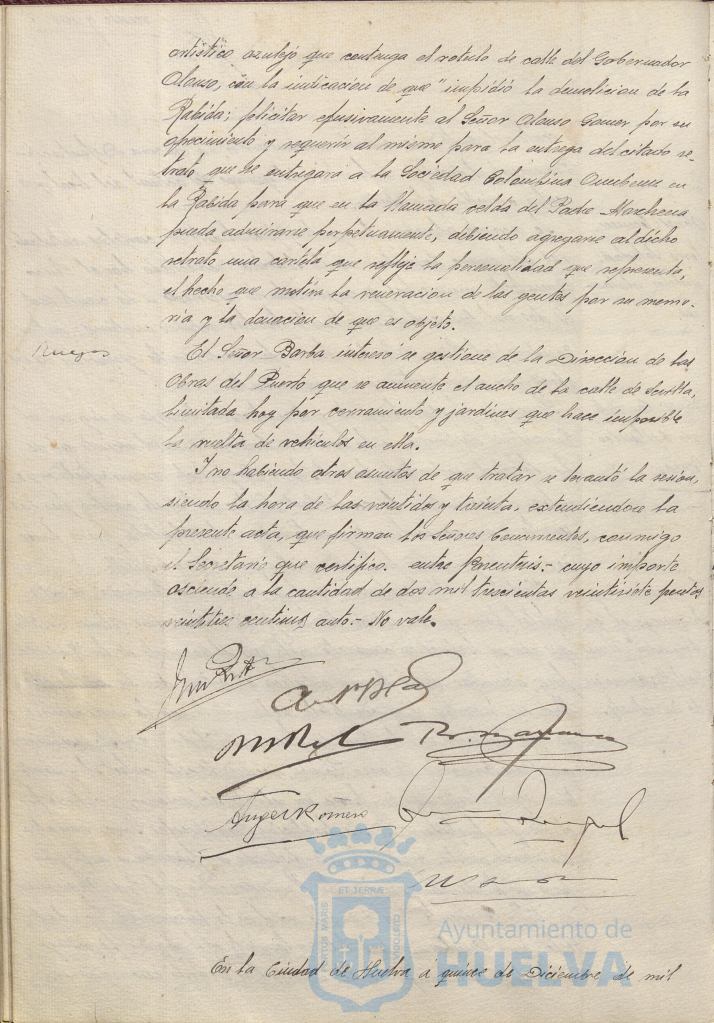 artístico azulejo que contenga el rotulo de calle del Gobernador
Alonso, con la indicación de que "impidió la demolicion de la
Rabida; felicitar efusivamente al Señor Alonso Gomez por su
ofrecimiento y requerir al mismo para la entrega del citado re-
trato que se entregará a la Sociedad Colombina Onubense en
la Rabida para que en la llamada celda del Padre Marchena
pueda admirarse perpetuamente, debiendo agregarse al dicho
retrato una cartela que refleje la personalidad que representa,
el hecho que motiva la veneracion de las gentes por su memo-
ria y la devocion de que es objeto.
Ruegos
El Señor Barba interesó se gestione de la Dirección de las
Obras del Puerto que se aumente el ancho de la calle de Sevilla,
limitada hoy por cerramiento y jardines que hace imposible
la vuelta de vehiculos en ella.
Y no habiendo otros asuntos de que tratar se levantó la sesion,
siendo la hora de las veintidos y treinta, extendiendose la
presente acta, que firman los Señores Concurrentes, conmigo
el Secretario que certifico.- entre parentesis.- cuyo importe
asciende a la cantidad de dos mil trescientas veintisiete pesetas
veintitres centimos.- No vale.
Angel Romero
ET TERRAE
PORTUS MARIS
CUSTODIA
Ayuntamiento de
HUELVA
En la Ciudad de Huelva a quince de Diciembre de mil